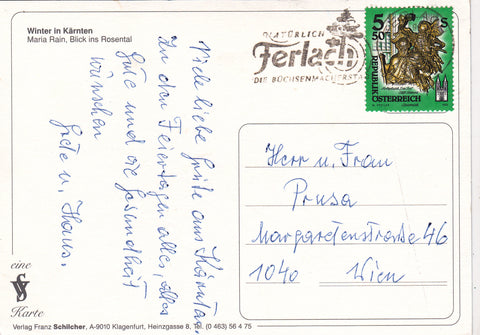 Winter in Kärnten
Maria Rain, Blick ins Rosental
NATÜRLICH
Ferlach
DIE BÜCHSENMACHERSTA
5 S
50
REPUBLIK
ÖSTERREICH
Viele liebe Grüße aus Kärnten
Zu den Feiertagen alles, alles
Gute und die Gesundheit
wünschen
Grete u. Hans.
Herrn u. Frau
Prusa
Margaretenstraße 46
1040 Wien
eine
Karte
Verlag Franz Schilcher, A-9010 Klagenfurt, Heinzgasse 8, Tel. (0 463) 56 4 75